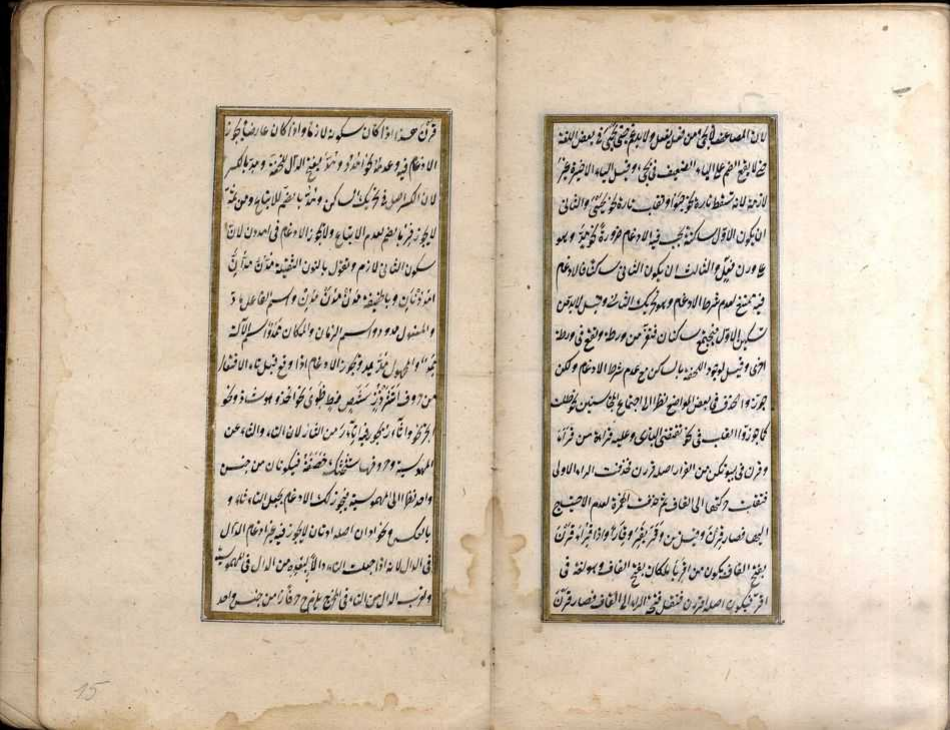 لان المضاعف في
حتى لا يقع الضم على الياء الضعيف في يحيى وقيل الياء الاخيرة غير
لازمة لانه تسقط تارة نحو حيوا وتقلب تارة نحو يحيى والثاني
ان يكون الاول ساكنة يجب فيه الادغام ضرورة نحو مد وهو
على وزن فعل والثالث ان يكون الثاني ساكنا فالادغام
فيه ممتنع لعدم شرط الادغام وهو تحريك الثاني وقيل لابد من
تسكين الاول فيجتمع ساكنان فتفر من ورطة وتقع في ورطة
اخرى وقيل لوجود الخفة بالساكن مع عدم شرط الادغام ولكن
جوزوا الحذف في بعض المواضع نظرا الى اجتماع المتجانسين نحو ظلت
كما جوزوا القلب في نحو تقضى البازى وعليه قراءة من قرأ
وقرن في بيوتكن من القرار اصله اقررن فحذفت الراء الاولى
فنقلت حركتها الى القاف ثم حذفت الهمزة لعدم الاحتياج
اليها فصار قرن وقيل من وقر يقر وقارا واذا قرأ قرن
بفتح القاف يكون من اقر بالمكان بفتح القاف وهو لغة في
اقر فيكون اصله اقررن فنقل فتحة الراء الى القاف فصار قرن
قرن هذا اذا كان سكونه لازما واذا كان عارضا يجوز
الادغام فيه وعدمه نحو امدد ومد بفتح الدال للخفة ومد بالكسر
لان الكسر اصل في تحريك الساكن ومد بالضم للاتباع ومن ثمة
لا يجوز فر بالضم لعدم الاتباع ولا يجوز الادغام في امددن لان
سكون الثاني لازم وتقول بالنون الثقيلة مدن مدان
امددنان وبالخفيفة مدن مدن مدن واسم الفاعل ماد
والمفعول ممدود واسم الزمان والمكان ممد واسم الآلة
ممد والمجهول مد يمد ويجوز الادغام اذا وقع قبل تاء الافتعال
من حروف اتثدذزسشصضطظوى نحو اتخذ وهو شاذ ونحو
اتجر ونحو اثار يجوز فيه اتار لان التاء والثاء من
المهموسية وحروفها ستشحثك خصفة فيكونان من جنس
واحد نظرا الى المهموسية فيجوز لك الادغام بجعل التاء ثاء و
بالعكس ونحو ادان اصله ادتان لا يجوز فيه غير ادغام الدال
في الدال لانه اذا جعلت التاء دالا لبعده من الدال في المهموسية
ولقرب الدال من التاء في المخرج يلزم حرفان من جنس واحد
15